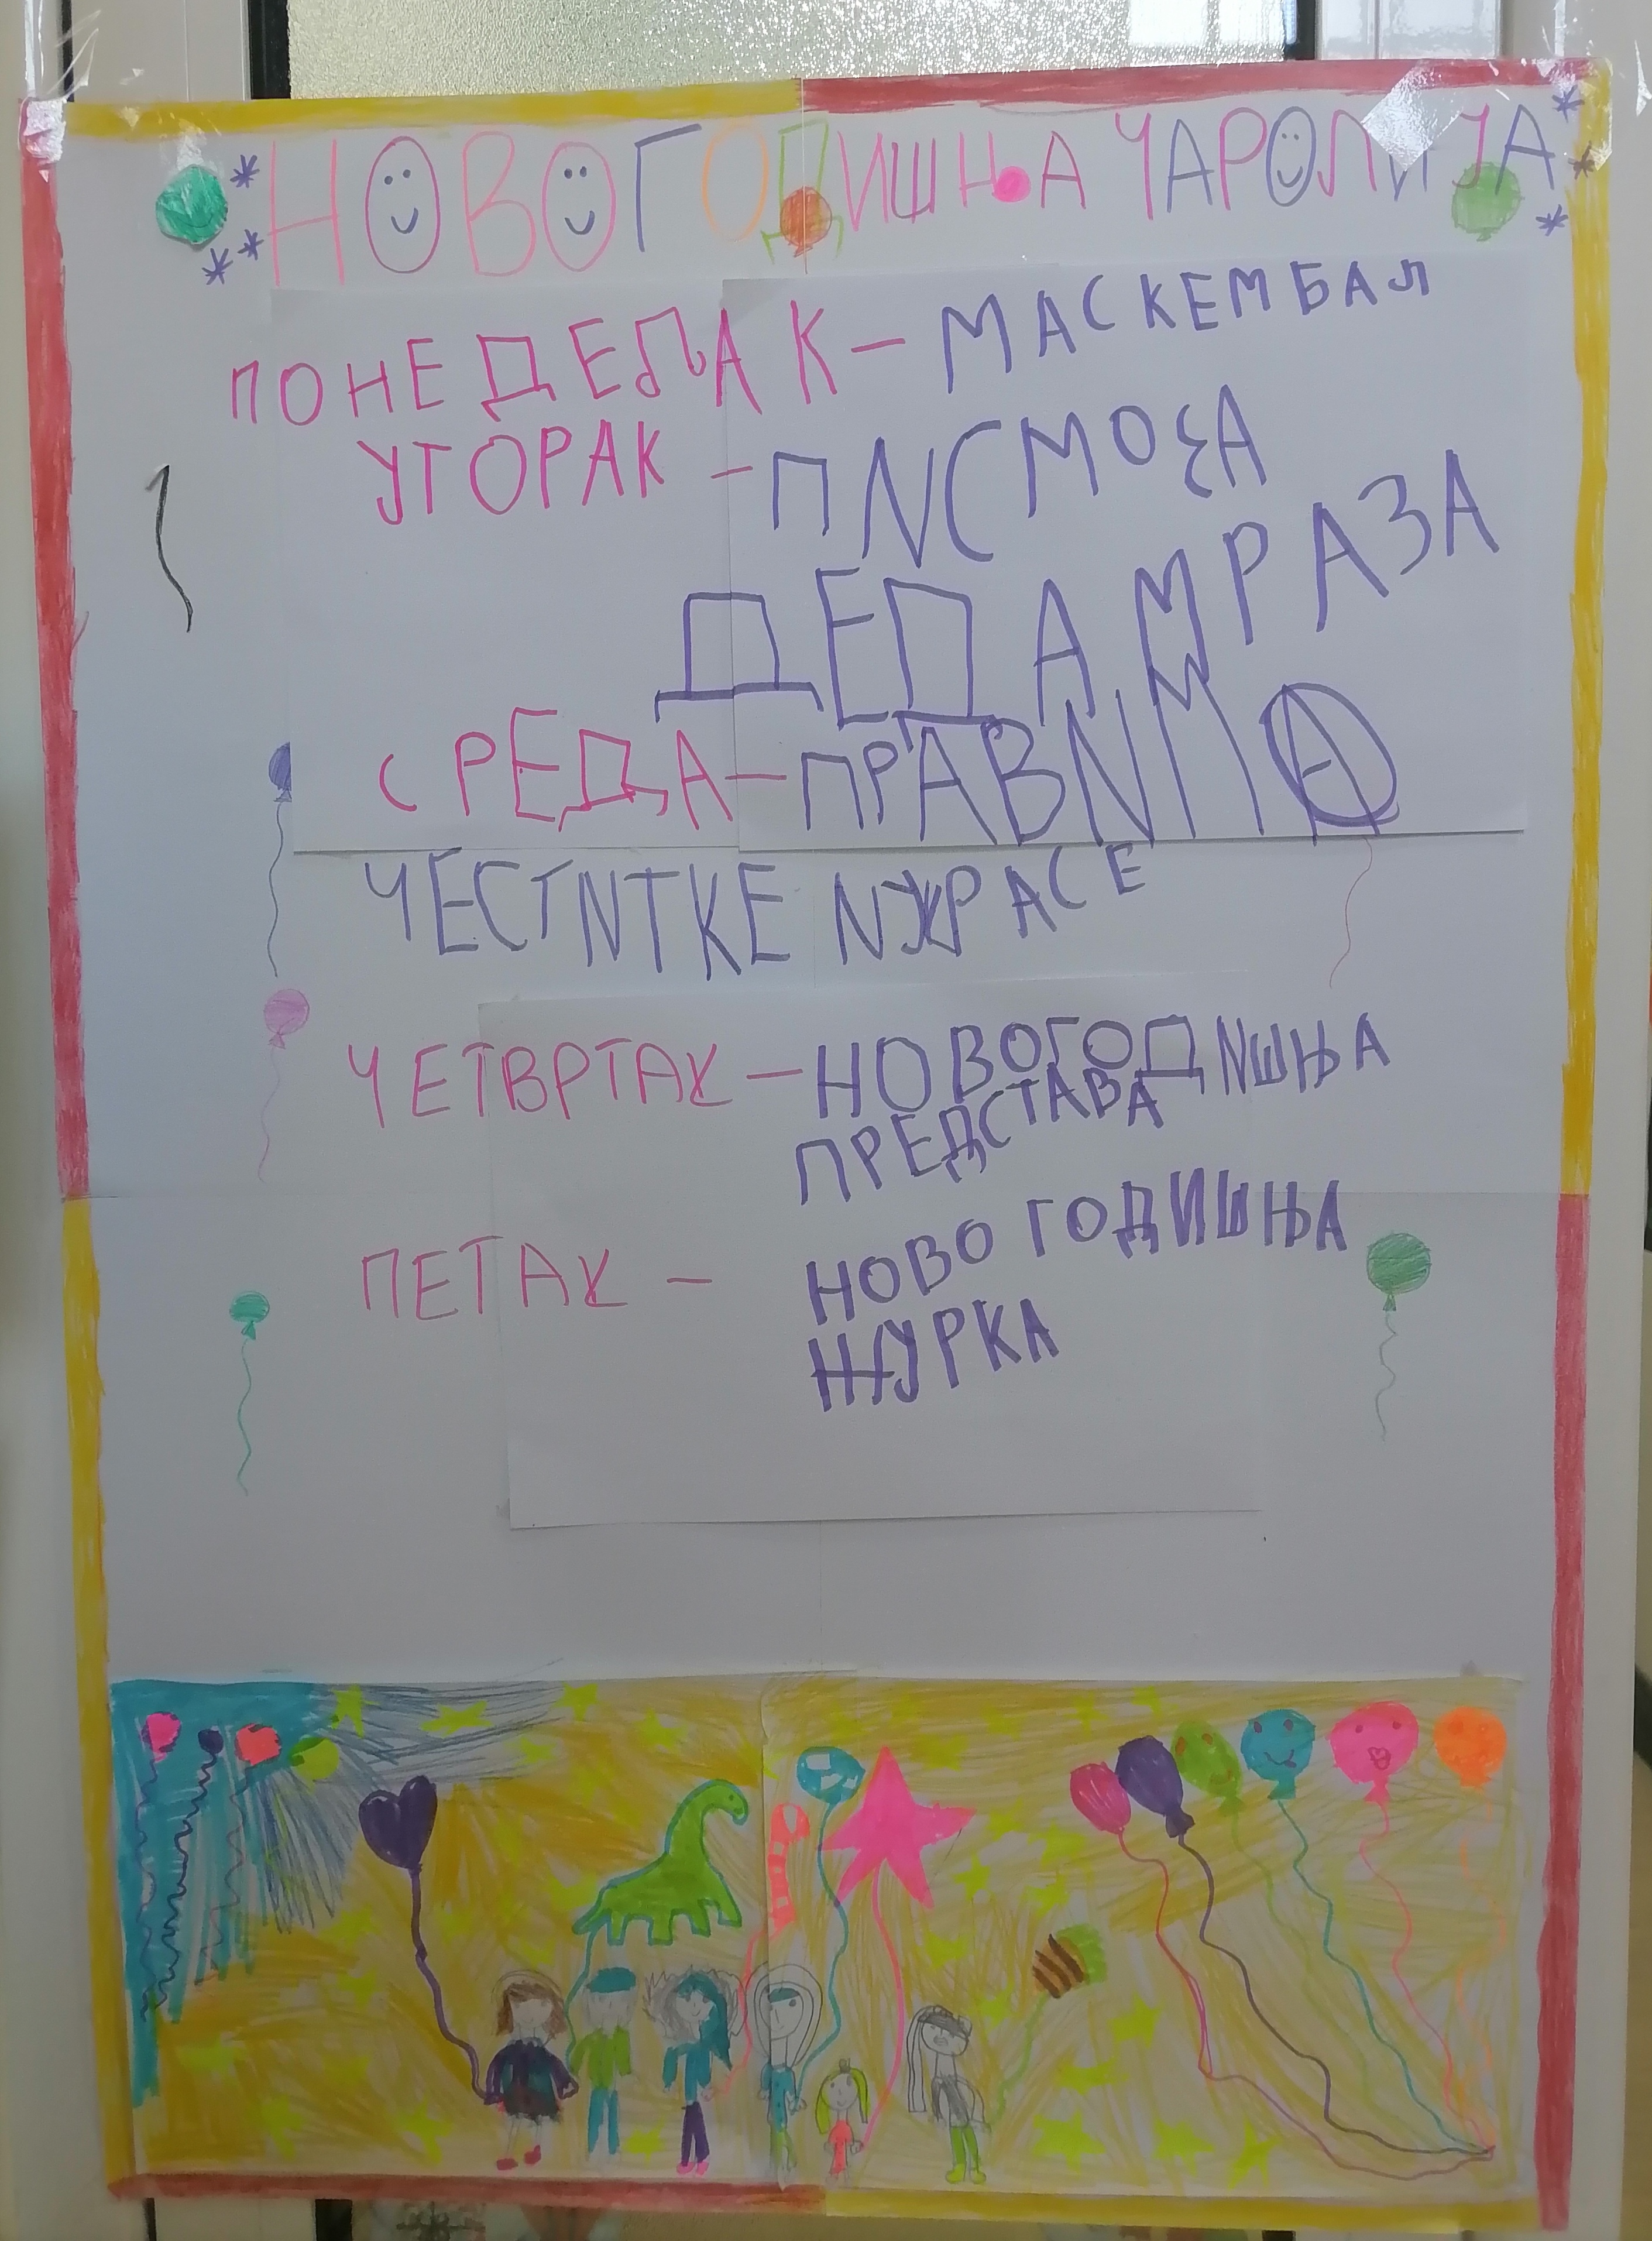 НОВОГОДИШЊА ЧАРОЛИЈА
ПОНЕДЕЉАК – МАСКЕМБАЛ
УТОРАК – ПИСМО ЗА
ДЕДА МРАЗА
СРЕДА – ПРАВИМО
ЧЕСТИТКЕ И УКРАСЕ
ЧЕТВРТАК – НОВОГОДИШЊА
ПРЕДСТАВА
ПЕТАК – НОВОГОДИШЊА
ЖУРКА